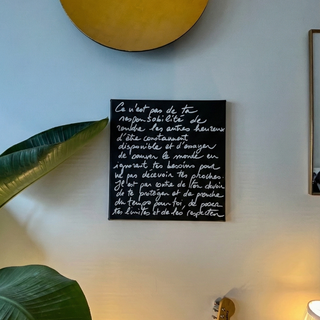 Ce n'est pas de ta
responsabilité de
rendre les autres heureux
d'être constamment
disponible et d'essayer
de sauver le monde en
ignorant tes besoins pour
ne pas décevoir tes proches.
de te protéger et de prendre
du temps pour toi, de poser
tes limites et de les respecter